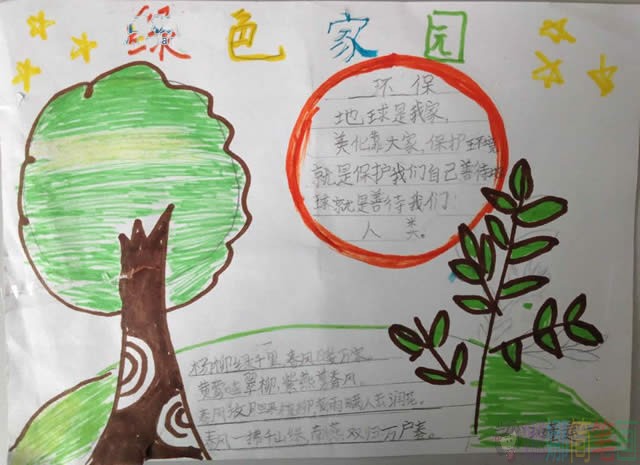 绿色家园
环保
地球是我家,
美化靠大家,保护环境
就是保护我们自己善待地
球就是善待我们
人类。
杨柳绿千里,春风暖万家。
黄莺鸣翠柳,紫燕剪春风。
春风
春风一拂千山绿,南燕双归万户春。